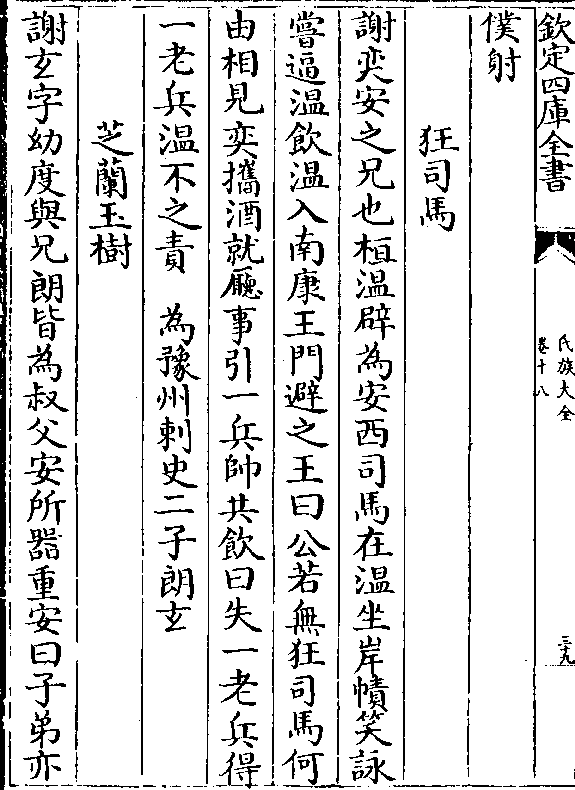 欽定四庫全書
氏族大全
卷十八
三九
僕射
狂司馬
謝奕安之兄也桓温辟為安西司馬在温坐岸幘笑詠
嘗逼温飲温入南康王門避之王曰公若無狂司馬何
由相見奕攜酒就廳事引一兵帥共飲曰失一老兵得
一老兵温不之責　為豫州刺史二子朗玄
芝蘭玉樹
謝玄字幼度與兄朗皆為叔父安所器重安曰子弟亦